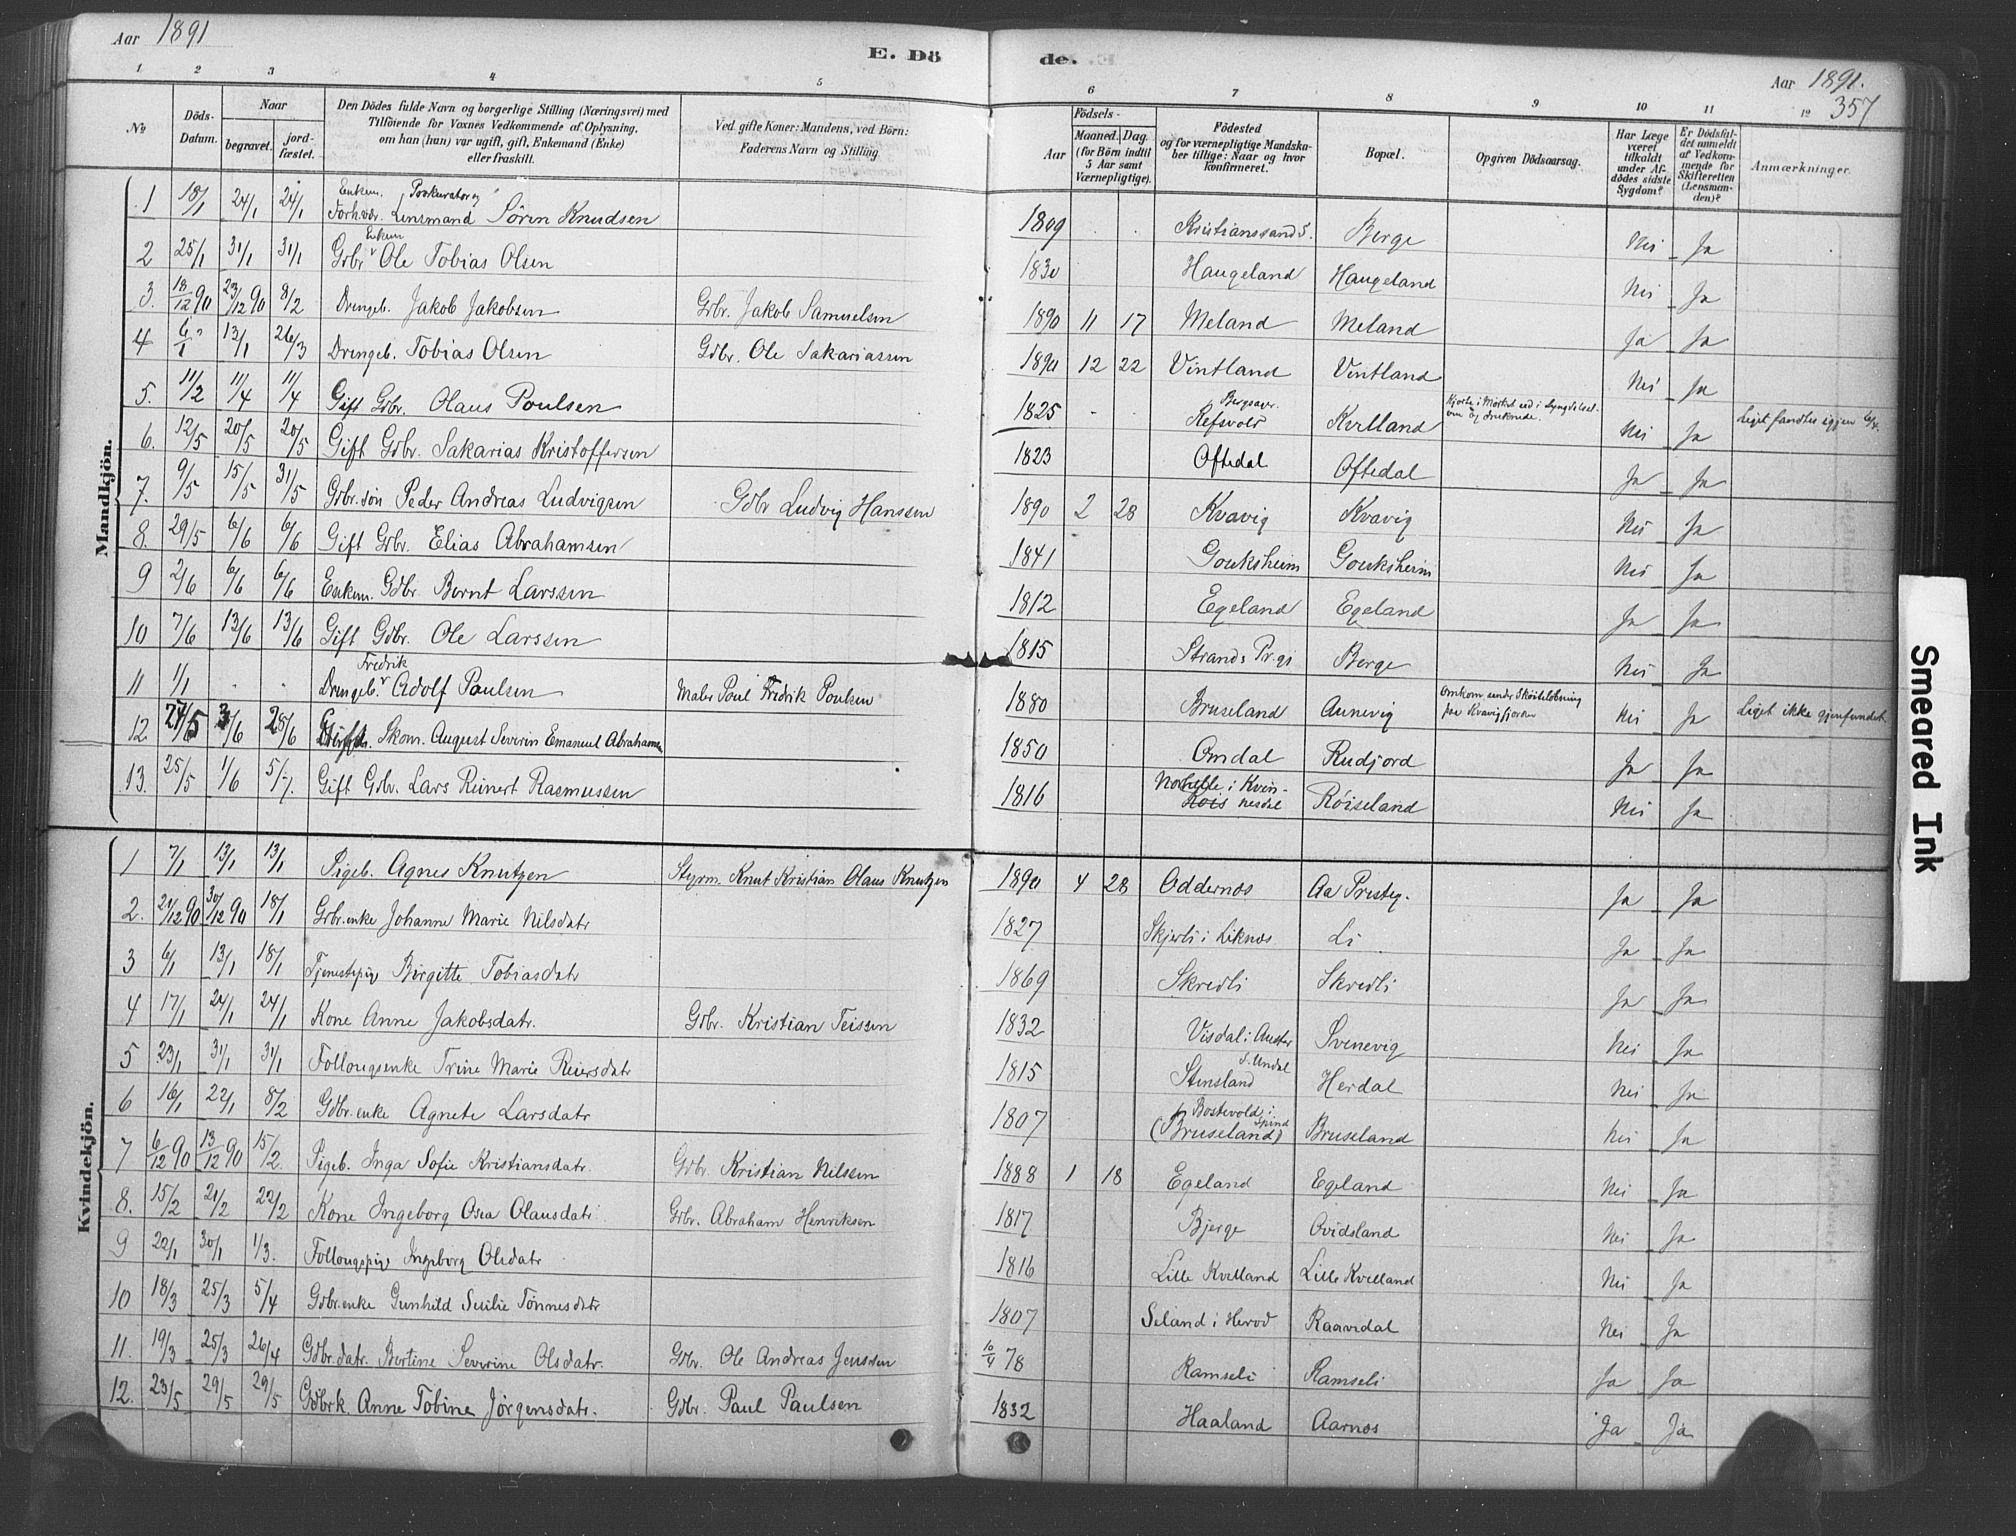 Aar 1891
E. Dö
de.
Aar 1891.
357
1 2 3 4 5 6 7 8 9 10 11 12
No
Döds-Datum.
Naar
begravet.
jord-fæstet.
Den Dödes fulde Navn og borgerlige Stilling (Næringsvei) med
Tilföiende for Voxnes Vedkommende af Oplysning,
om han (hun) var ugift, gift, Enkemand (Enke)
eller fraskilt.
Ved gifte Koner: Mandens, ved Börn:
Faderens Navn og Stilling
Födsels-
Aar
Maaned. Dag.
(for Börn indtil
5 Aar samt
Værnepligtige).
Födested
og for værnepligtige Mandska-
ber tillige: Naar og hvor
konfirmeret.
Bopæl.
Opgiven Dödsaarsag.
Har Læge
været
tilkaldt
under Af-
dödes sidste
Sygdom?
Er Dödsfal-
det anmeldt
af Vedkom-
mende for
Skifteretten
(Lensman-
den)?
Anmærkninger.
Mandkjön.
1 18/1 24/1 24/1 Enkem. Prokurator og Forhv. Lensmand Sören Knudsen 1809 Kristianssand S. Berge Nei Ja
2 25/1 31/1 31/1 Gdbr. Enkem Ole Tobias Olsen 1830 Haugeland Haugeland Nei Ja
3. 18/12 90 23/12 90 8/2 Drengeb. Jakob Jakobsen Gdbr. Jakob Samuelsen 1890 11 17 Meland Meland Ja Ja
4 6/1 13/1 26/3 Drengeb. Tobias Olsen Gdbr. Ole Sakariassen 1890 12 22 Vintland Vintland Nei Ja
5. 11/2 11/4 11/4 Gift Gdbr. Olaus Poulsen 1825 Refsvold Kvelland Nei Ja Liget fandtes igjen 6/4.
6. 12/5 20/5 20/5 Gift Gdbr. Sakarias Kristoffersen 1823 Oftedal Oftedal Ja Ja
7. 9/5 15/5 31/5 Gdbr.søn Peder Andreas Ludvigsen Gdbr Ludvig Hanssen 1890 2 28 Kvavig Kvavig Nei Ja
8. 29/5 6/6 6/6 Gift Gdbr. Elias Abrahamsen 1841 Gouksheim Gouksheim Nei Ja
9 2/6 6/6 6/6 Enkem. Gdbr. Bernt Larssen 1812 Egeland Egeland Ja Ja
10 7/6 13/6 13/6 Gift Gdbr. Ole Larssen 1815 Strands Pr.gj Berge Nei Ja
11 1/1 Drengeb. Fredrik Adolf Paulsen Maler Poul Fredrik Poulsen 1880 Bruseland Aunevig Omkom under Skøiteløbning paa Kvavigfjorden Nei Ja Liget ikke gjenfundet
12 27/5 3/6 28/6 Skom. August Severin Emanuel Abrahamsen 1850 Omdal Rudjord Ja Ja
13. 25/5 1/6 5/7. Gift Gdbr. Lars Reinert Rasmussen 1816 i Kvinesdal Röiseland Nei Ja
Kvindekjön.
1 7/1 13/1 13/1 Pigeb. Agnes Knutzen Styrm. Knut Kristian Olaus Knutzen 1890 4 28 Oddernes Aa Presteg. Ja Ja
2. 21/12 90 30/12 90 18/1 Gdbr.enke Johanne Marie Nilsdatr 1827 Skjerli i Liknes Li Ja Ja
3 6/1 13/1 18/1 Tjenestepige Birgitte Tobiasdatr 1869 Skredli Skredli Ja Ja
4 17/1 24/1 24/1 Kone Anne Jakobsdatr. Gdbr. Kristian Teissen 1832 Visdal i Auster Svenevig Nei Ja
5 23/1 31/1 31/1 Follougsenke Trine Marie Reiersdatr 1815 Stensland S. Undal Herdal Nei Ja
6 16/1 22/1 8/2 Gdbr.enke Agnete Larsdatr 1807 Bostevold i Spind (Bruseland) Bruseland Nei Ja
7 6/12 90 13/12 90 15/2. Pigeb. Inga Sofie Kristiansdatr. Gdbr. Kristian Nilssen 1888 1 18 Egeland Egeland Nei Ja
8. 15/2 21/2 22/2 Kone Ingeborg Osea Olausdatr. Gdbr. Abraham Henriksen 1817 Bjerge Ovidsland Nei Ja
9 22/1 30/1 1/3. Follougspige Ingeborg Olsdatr 1816 Lille Kvelland Lille Kvelland Nei Ja
10 18/3 25/3 5/4 Gdbr.enke Gunhild Tönnesdatr 1807 Seland i Herad Raavidal Nei Ja
11. 19/3 25/3 26/4 Gdbr.datr. Bertine Severine Olsdatr. Gdbr. Ole Andreas Jenssen 10/4 78 Ramseli Ramseli Ja Ja
12. 23/5 29/5 29/5 Gdbrk. Anne Tobine Jörgensdatr. Gdbr. Paul Paulsen 1832 Haaland Aarnes Ja Ja
Smeared Ink